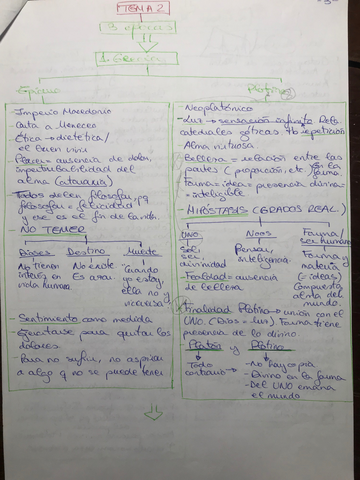 TEMA 2
3 épocas
1. Grecia
Epicuro
- Imperio Macedonio
Carta a Meneceo
- Ética → dietética /
el buen vivir
- Placer = ausencia de dolor,
imperturbabilidad del
alma (ataraxis)
- Todos deben filosofar, pq
filosofar = felicidad
y ese es el fin de la vida.
- NO TEMER
Dioses
No tienen
interés en
vida humana
Destino
No existe
Es azar
Muerte
"Cuando
yo estoy,
ella no y
viceversa"
- Sentimiento como medida
- para quitar los
dolores
- Para no sufrir, no aspirar
a algo q no se puede tener
Plotino
- Neoplatónico
- Luz → sensación infinito De las
catedrales góticas
Alma virtuosa
- Belleza = relación entre las
partes (proporción, etc.) y la forma
Forma = idea = presencia divina =
= inteligible
- HIPÓSTASIS (GRADOS REAL.)
UNO
Sol,
ser,
divinidad
Noos
Pensar,
inteligencia
Forma /
ser humano
Forma y
materia
(= ideas)
Compuestos
alma del
mundo.
- Fealdad = ausencia
de belleza
- Finalidad Plotino → unión con el
UNO. (Dios = luz) Forma tiene
presencia de lo divino
Platón y Plotino
Todo
contrario →
- No hay copia
- Divino en la forma
- Del UNO emana
el mundo.